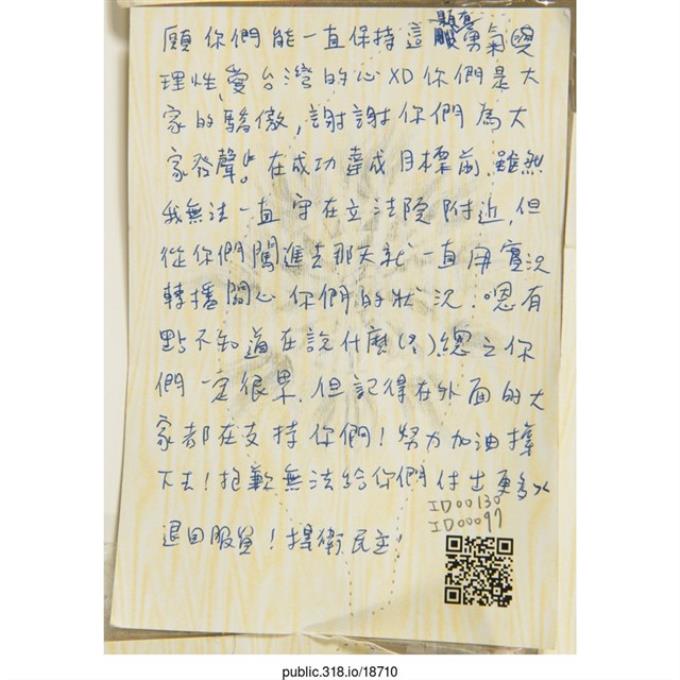 願你們能一直保持這顆有勇氣與
理性,愛台灣的心XD你們是大
家的驕傲,謝謝你們為大
家發聲。在成功達成目標前,雖然
我無法一直守在立法院附近,但
從你們闖進去那天就一直用實況
轉播關心你們的狀況.嗯有
點不知道在說什麼(?).總之你
們一定很累.但記得在外面的大
家都在支持你們!努力加油撐
下去!抱歉無法給你們付出更多
退回服貿!捍衛民主!
ID00130
ID00097
public.318.io/18710